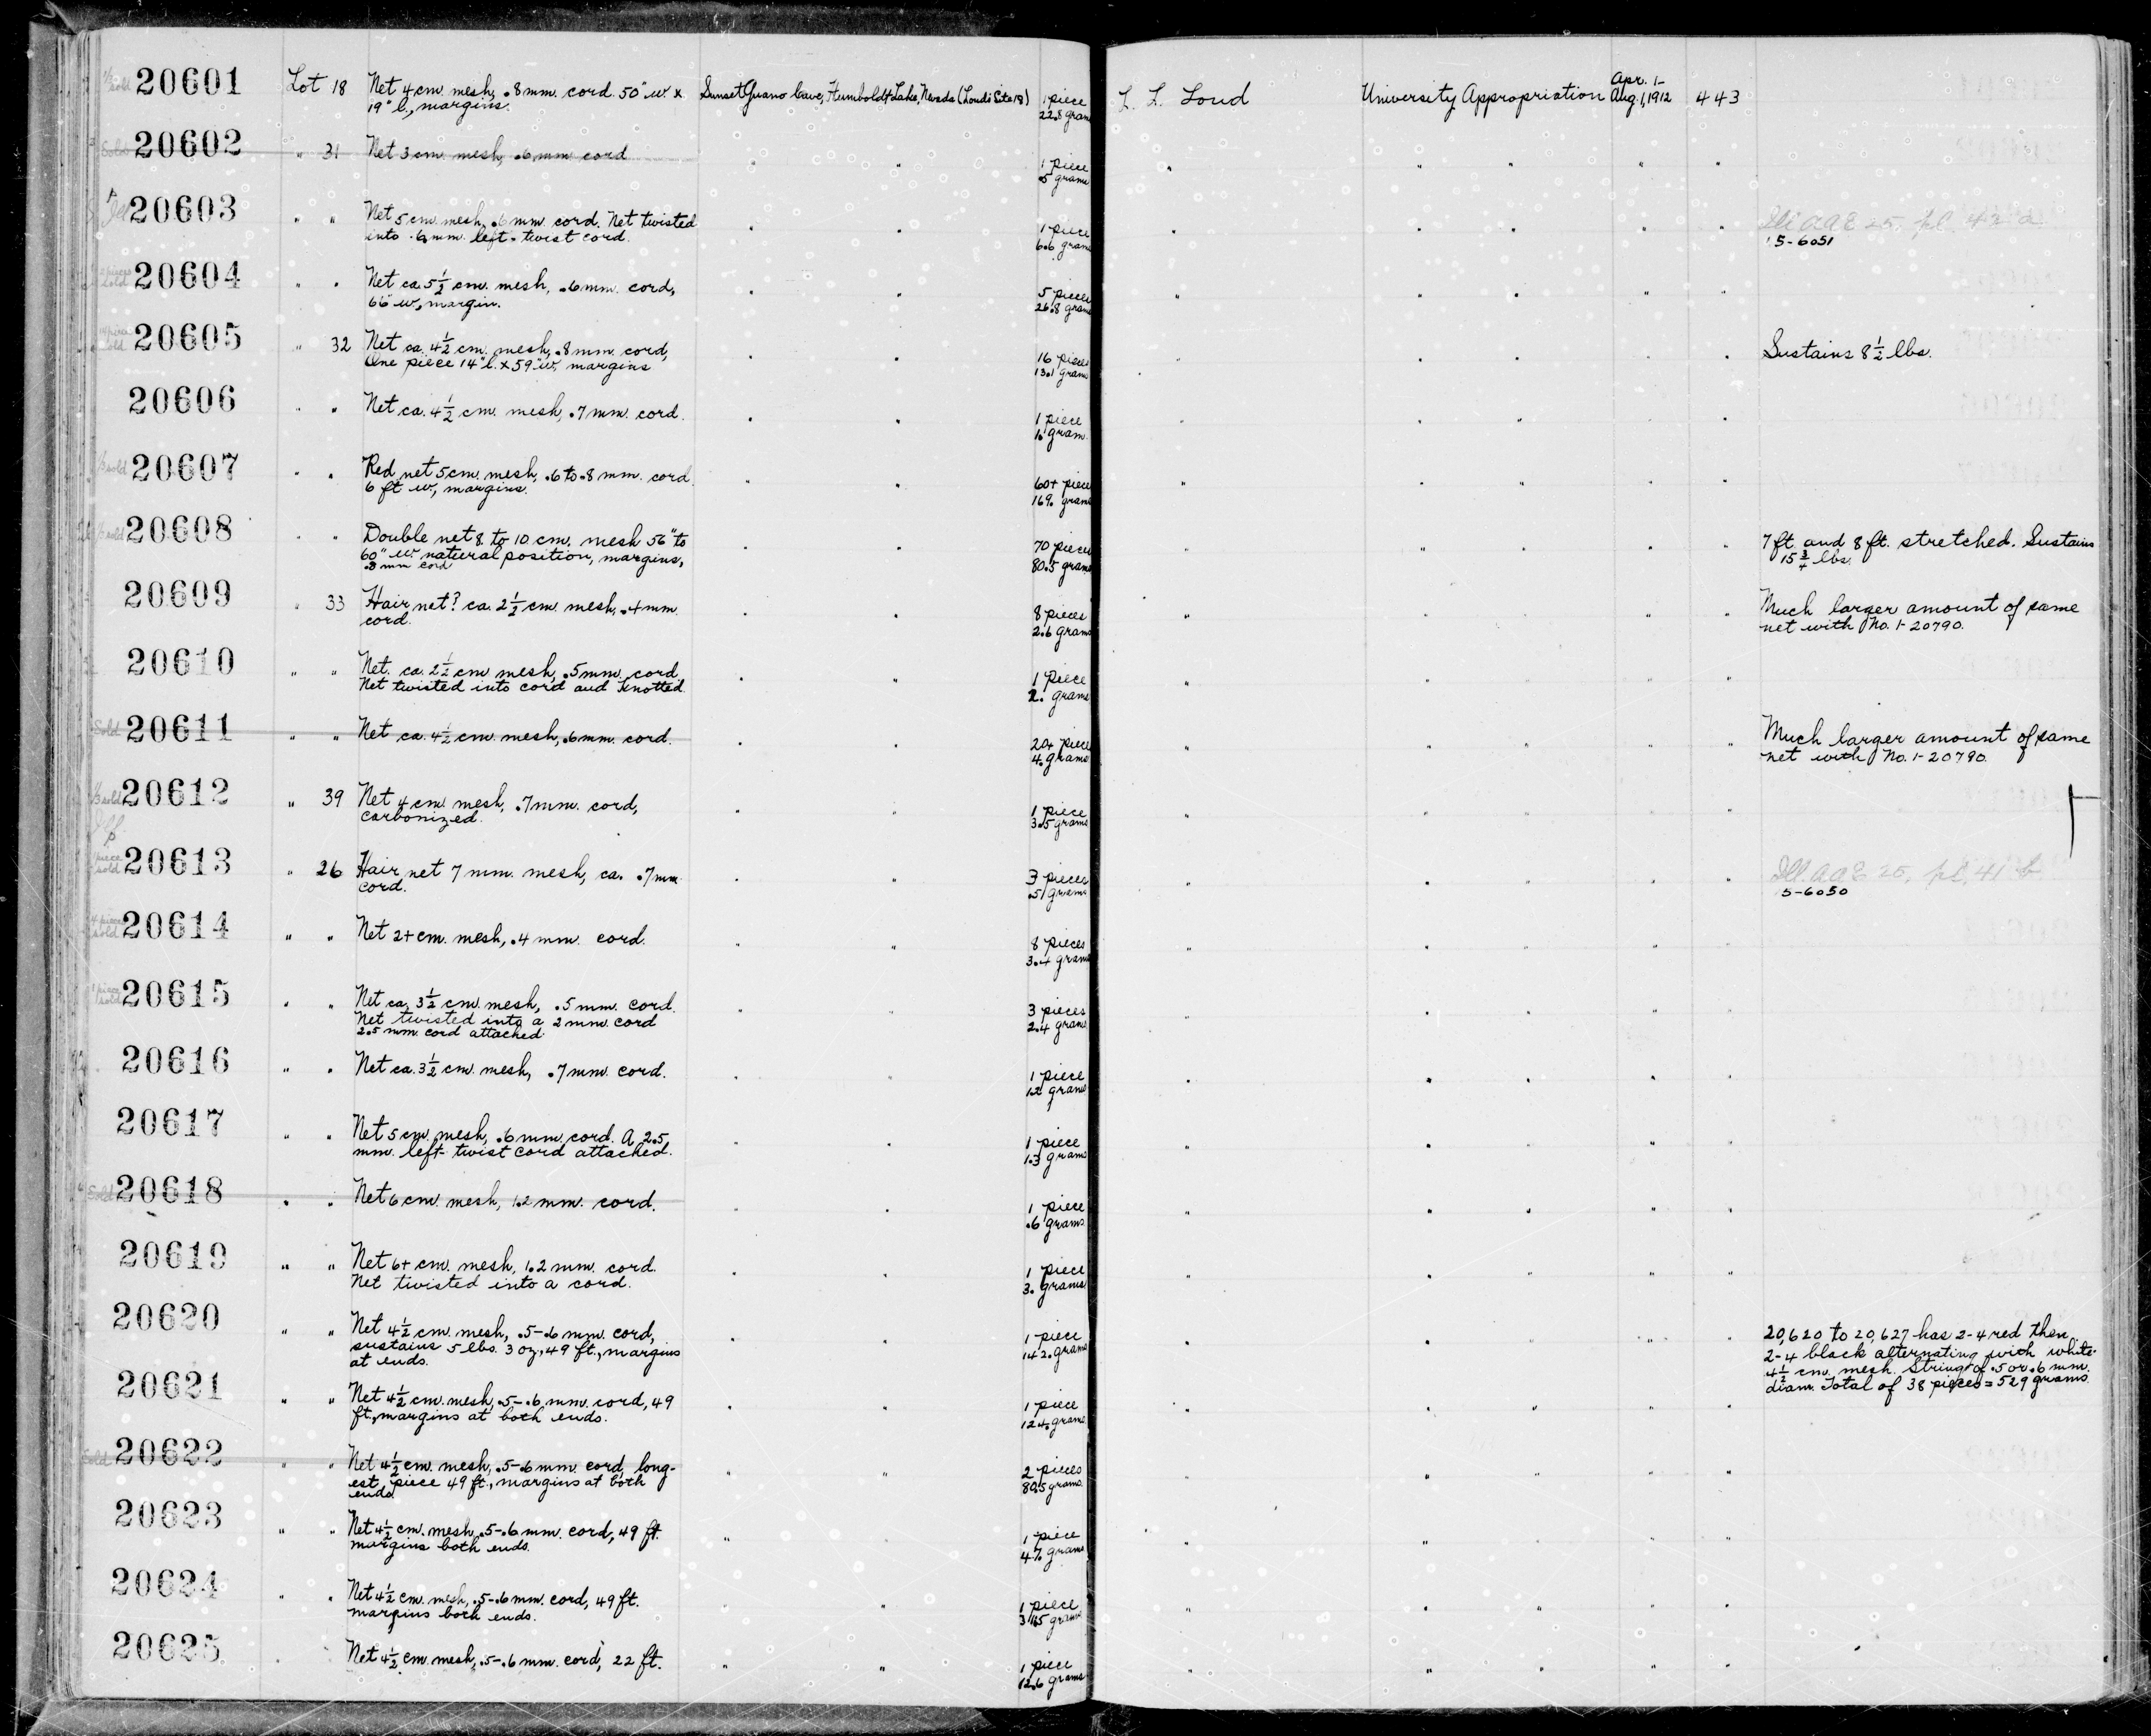 1/2 sold 20601 Lot 18 Net 4 cm. mesh, .8 mm. cord. 50" w. x Sunset Guano Cave, Humboldt Lake, Nevada (Loud Site 18) 1 piece L. L. Loud University Appropriation Apr. 1- Aug. 1, 1912 443
19" l., margins. 22.8 grams
Sold 20602 " 31 Net 3 cm. mesh, .6 mm. cord " " 1 piece " " " " "
.5 grams
20603 " " Net 5 cm. mesh, .6 mm. cord. Net twisted " " 1 piece " " " " " Ill. AAE 25, pl. 43 a
into .6 mm. left-twist cord. 6.6 grams 15-6051
20604 " " Net ca. 5 1/2 cm. mesh, .6 mm. cord, " " 5 pieces " " " " "
66" w., margin. 26.8 grams
20605 " 32 Net ca. 4 1/2 cm. mesh, .8 mm. cord, " " 16 pieces " " " " " Sustains 8 1/2 lbs.
One piece 14" l. x 59" w., margins 13.1 grams
20606 " " Net ca. 4 1/2 cm. mesh, .7 mm. cord. " " 1 piece " " " " "
1. gram
1/3 sold 20607 " " Red net 5 cm. mesh, .6 to .8 mm. cord " " 60+ piece " " " " "
6 ft w., margins. 169. grams
1/2 sold 20608 " " Double net 8 to 10 cm. mesh 56" to " " 70 pieces " " " " " 7 ft. and 8 ft. stretched. Sustains
60" w. natural position, margins, 80.5 grams 15 3/4 lbs.
.8 mm cord
20609 " 33 Hair net? ca. 2 1/2 cm. mesh, .4 mm. " " 8 pieces " " " " " Much larger amount of same
cord. 2.6 grams net with No. 1-20790.
20610 " " Net. ca. 2 1/2 cm. mesh, .5 mm. cord. " " 1 piece " " " " "
Net twisted into cord and knotted 2. grams
Sold 20611 " " Net ca. 4 1/2 cm. mesh, .6 mm. cord. " " 20+ piece " " " " " Much larger amount of same
4. grams net with No. 1-20790.
1/3 sold 20612 " 39 Net 4 cm. mesh, .7 mm. cord, " " 1 piece " " " " "
carbonized. 3.5 grams
1 piece sold 20613 " 26 Hair net 7 mm. mesh, ca. .7 mm " " 3 pieces " " " " " Ill. AAE 25, pl. 41 b
cord. .51 grams 15-6050
4 pieces sold 20614 " " Net 2+ cm. mesh, .4 mm. cord. " " 8 pieces " " " " "
3.4 grams
1 piece sold 20615 " " Net ca. 3 1/2 cm. mesh, .5 mm. cord. " " 3 pieces " " " " "
Net twisted into a 2 mm. cord 2.4 grams
2.5 mm. cord attached.
20616 " " Net ca. 3 1/2 cm. mesh, .7 mm. cord. " " 1 piece " " " " "
grams
20617 " " Net 5 cm. mesh, .6 mm. cord. A 2.5 " " 1 piece " " " " "
mm. left-twist cord attached. 1.3 grams
Sold 20618 " " Net 6 cm. mesh, 1.2 mm. cord. " " 1 piece " " " " "
.6 grams
20619 " " Net 6+ cm. mesh, 1.2 mm. cord. " " 1 piece " " " " "
Net twisted into a cord. 3. grams
20620 " " Net 4 1/2 cm. mesh, .5-.6 mm. cord, " " 1 piece " " " " " 20,620 to 20,627 has 2-4 red then
sustains 5 lbs. 3 oz., 49 ft., margins 142. grams 2-4 black alternating with white.
at ends. 4 1/2 cm. mesh. Strings of .5 or .6 mm.
diam. Total of 38 pieces = 529 grams.
20621 " " Net 4 1/2 cm. mesh, .5-.6 mm. cord, 49 " " 1 piece " " " " "
ft., margins at both ends. 124. grams
Sold 20622 " " Net 4 1/2 cm. mesh, .5-.6 mm. cord, long- " " 2 pieces " " " " "
est piece 49 ft., margins at both 80.5 grams
ends.
20623 " " Net 4 1/2 cm. mesh, .5-.6 mm. cord, 49 ft. " " 1 piece " " " " "
margins both ends. 47. grams
20624 " " Net 4 1/2 cm. mesh, .5-.6 mm. cord, 49 ft. " " 1 piece " " " " "
margins both ends. grams
20625 " " Net 4 1/2 cm. mesh, .5-.6 mm. cord, 22 ft. " " 1 piece " " " " "
12.6 grams